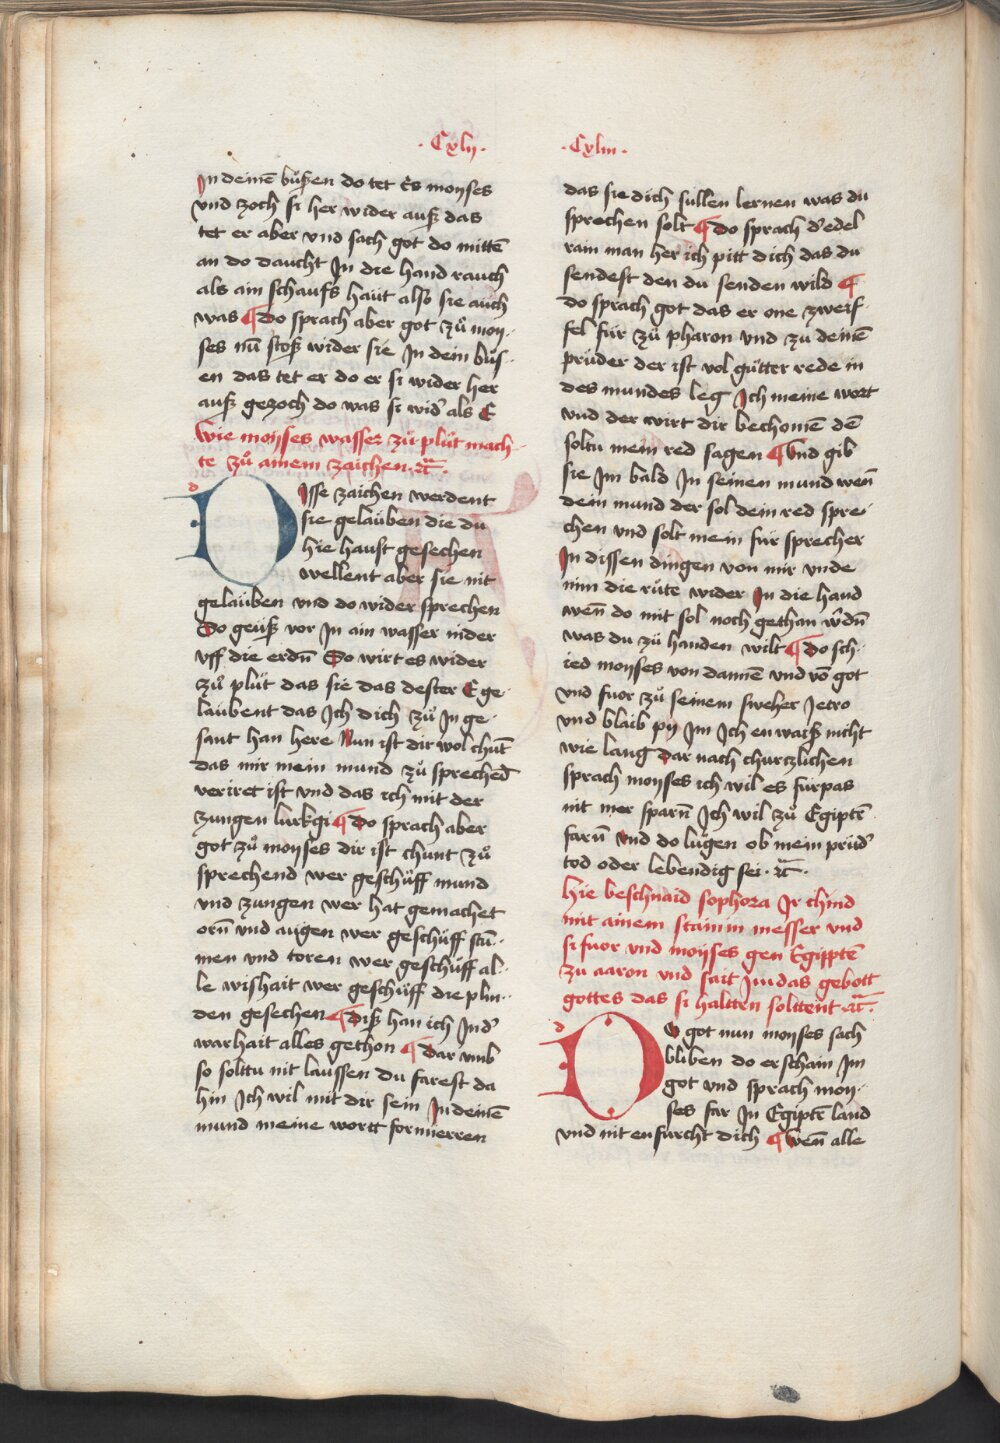 ·Cxlij·
In deinē buͦsen do tet Es moyses
vnd zoch si her wider auß das
tet er aber vnd sach got do mittē
an do daucht In die hand rauch
als ain schaufs haüt also sie auch
was ¶ Do sprach aber got zuͦ moy-
ses nū stoß wider sie In dein buͦs-
en das tet er do er si wider her
auß gezoch do was si wid' als E
Wie moyses wasser zuͦ pluͦt mach-
te zuͦ ainem zaichen ·rc̄·
d
DIsse zaichen werdent
sie gelaüben die du
hie haust gesechen
wellent aber sie nit
gelaüben vnd do wider sprechen
So geüß vor In ain wasser nider
vff die erdn̄ So wirt es wider
zuͦ pluͦt das sie das dester E ge-
laübent das Ich dich zuͦ In ge-
sant han here Nun ist dir wol chūt
das mir mein mund zuͦ sprechēd
veriret ist vnd das ich mit der
zungen lurkgi ¶ Do sprach aber
got zuͦ moyses dir ist chunt zuͦ
sprechend wer geschüff mund
vnd zungen wer hat gemachet
orn̄ vnd augen wer geschüff stū-
men vnd toren wer geschüff al-
le wishait wer geschüff die plin-
den gesechen ¶ Diß han ich In d'
warhait alles gethon ¶ Dar vmb
so solttu nit laussen du farest da
hin Ich wil mit dir sein In deinē
mund meine wortt formierren
·Cxliii·
das sie dich süllen lernen was du
sprechen solt ¶ Do sprach d' edel
rain man her ich pitt dich das du
sendest den du senden wild ¶
Do sprach got das er one zweif-
fel für zuͦ pharon vnd zu deinē
prüder der ist vol guͦtter rede in
des mundes leg Ich meine wort
vnd der wirt dir bechomē dē
soltu mein red sagen ¶ Vnd gib
sie Im bald In seinen mund wen̄
dein mund der sol dem red spre-
chen vnd solt mein für sprecher
In dissen dingen von mir vnde
nim die ruͦte wider In die hand
wen̄ do mit sol noch gethan w'dn̄
was du zü handen wilt ¶ Do sch-
ied moyses von dannē vnd vō got
vnd fuor zuͦ seinem sweher Jetro
vnd blaib py Im Ich en waiß nicht
wie lang Dar nach churczlichen
sprach moyses ich wil es fürpas
nit mer sparn̄ Ich wil zuͦ Egiptē
farn̄ vnd do luͦgen ob mein prüd'
tod oder lebendig sei ·rc̄·
Hie beschnaid sophora Ir chind
mit ainem stainin messer vnd
si fuor vnd moyses gen Egipptē
zu aaron vnd sait Im das gebott
gottes das si haltten solttent ·rc̄·
d
DO got nun moyses sach
bliben do erschain Im
got vnd sprach moy-
ses far In Egiptē land
vnd nit enfurcht dich ¶ Wen̄ alle